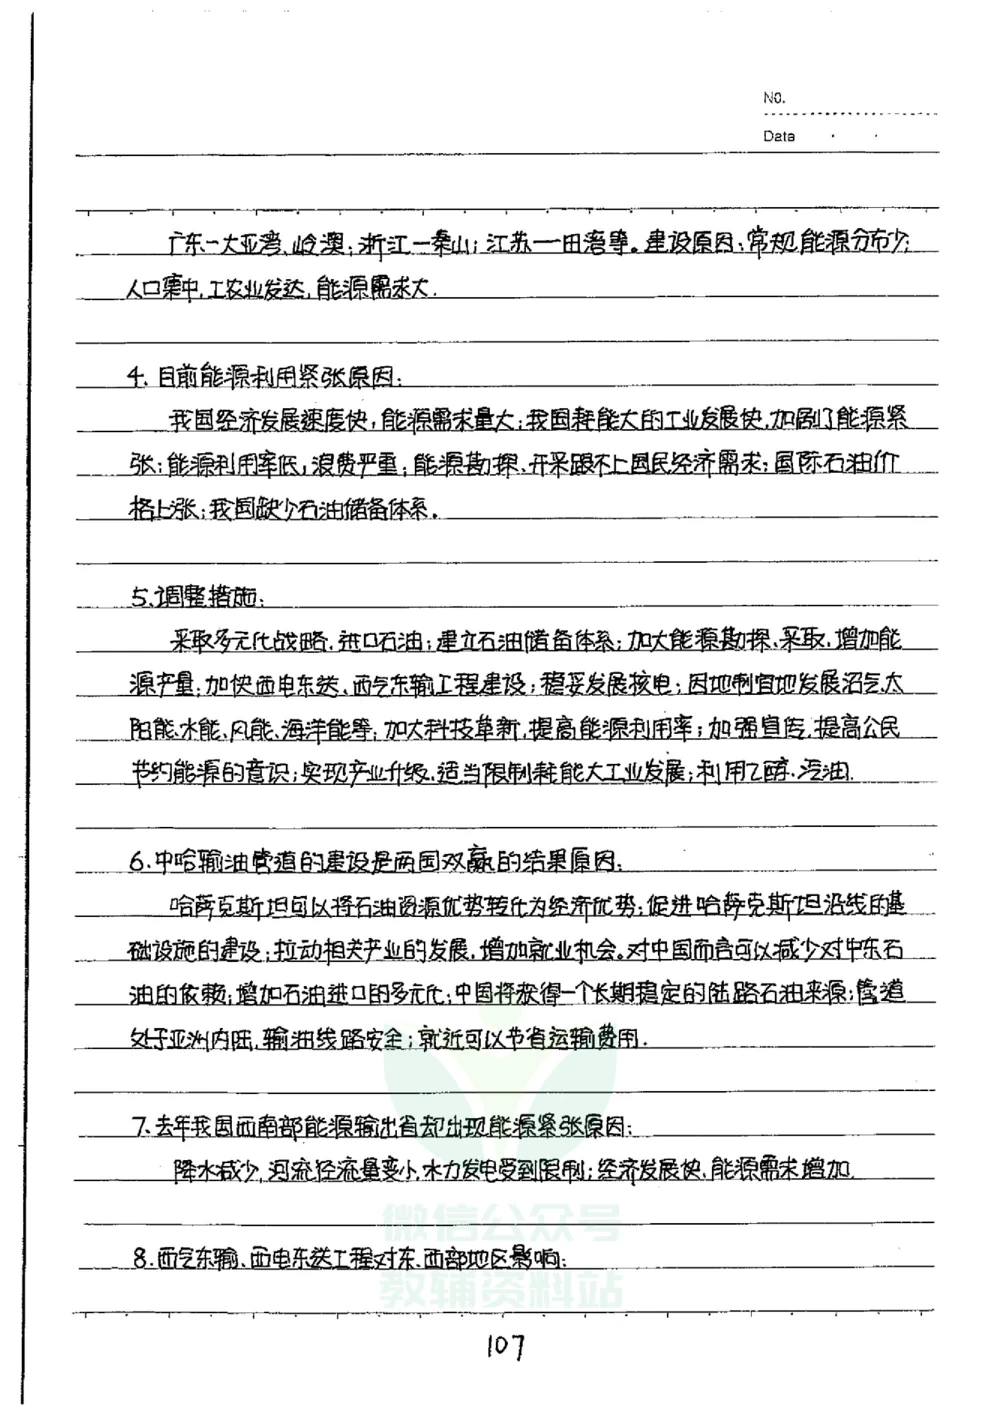 No.
Date
广东—大亚湾、岭澳；浙江—秦山；江苏—田湾等。建设原因：常规能源分布少；
人口集中，工农业发达，能源需求大.
4. 目前能源利用紧张原因：
我国经济发展速度快，能源需求量大；我国耗能大的工业发展快，加剧了能源紧
张；能源利用率低，浪费严重；能源勘探、开采跟不上国民经济需求；国际石油价
格上涨；我国缺少石油储备体系。
5.调整措施：
采取多元化战略，进口石油；建立石油储备体系；加大能源勘探、采取，增加能
源产量；加快西电东送、西气东输工程建设；稳妥发展核电；因地制宜地发展沼气、太
阳能、水能、风能、海洋能等；加大科技革新，提高能源利用率；加强宣传，提高公民
节约能源的意识；实现产业升级，适当限制耗能大工业发展；利用乙醇、汽油.
6.中哈输油管道的建设是两国双赢的结果原因：
哈萨克斯坦可以将石油资源优势转化为经济优势；促进哈萨克斯坦沿线的基
础设施的建设；拉动相关产业的发展，增加就业机会。对中国而言可以减少对中东石
油的依赖；增加石油进口的多元化；中国将获得一个长期稳定的陆路石油来源；管道
处于亚洲内陆，输油线路安全；就近可以节省运输费用.
7.去年我国西南部能源输出省却出现能源紧张原因：
降水减少，河流径流量变小，水力发电受到限制；经济发展快，能源需求增加.
微信公众号
8.西气东输、西电东送工程对东、西部地区影响：
教辅资料站
107